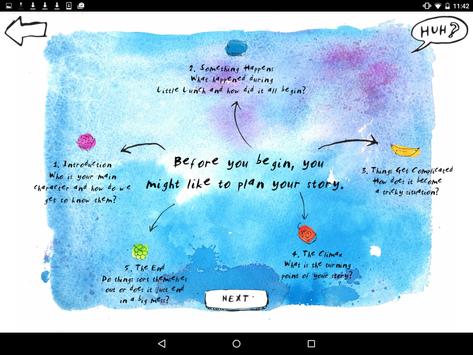 11:42
HUH?
2. Something Happens
What happened during
Little Lunch and how did it all begin?
1. Introduction
Who is your main
character and how do we
get to know them?
Before you begin, you
might like to plan your story.
3. Things Get Complicated
How does it become
a tricky situation?
5. The End
Do things sort themselves
out or does it just end
in a big mess?
4. The Climax
What is the turning
point of your story?
NEXT